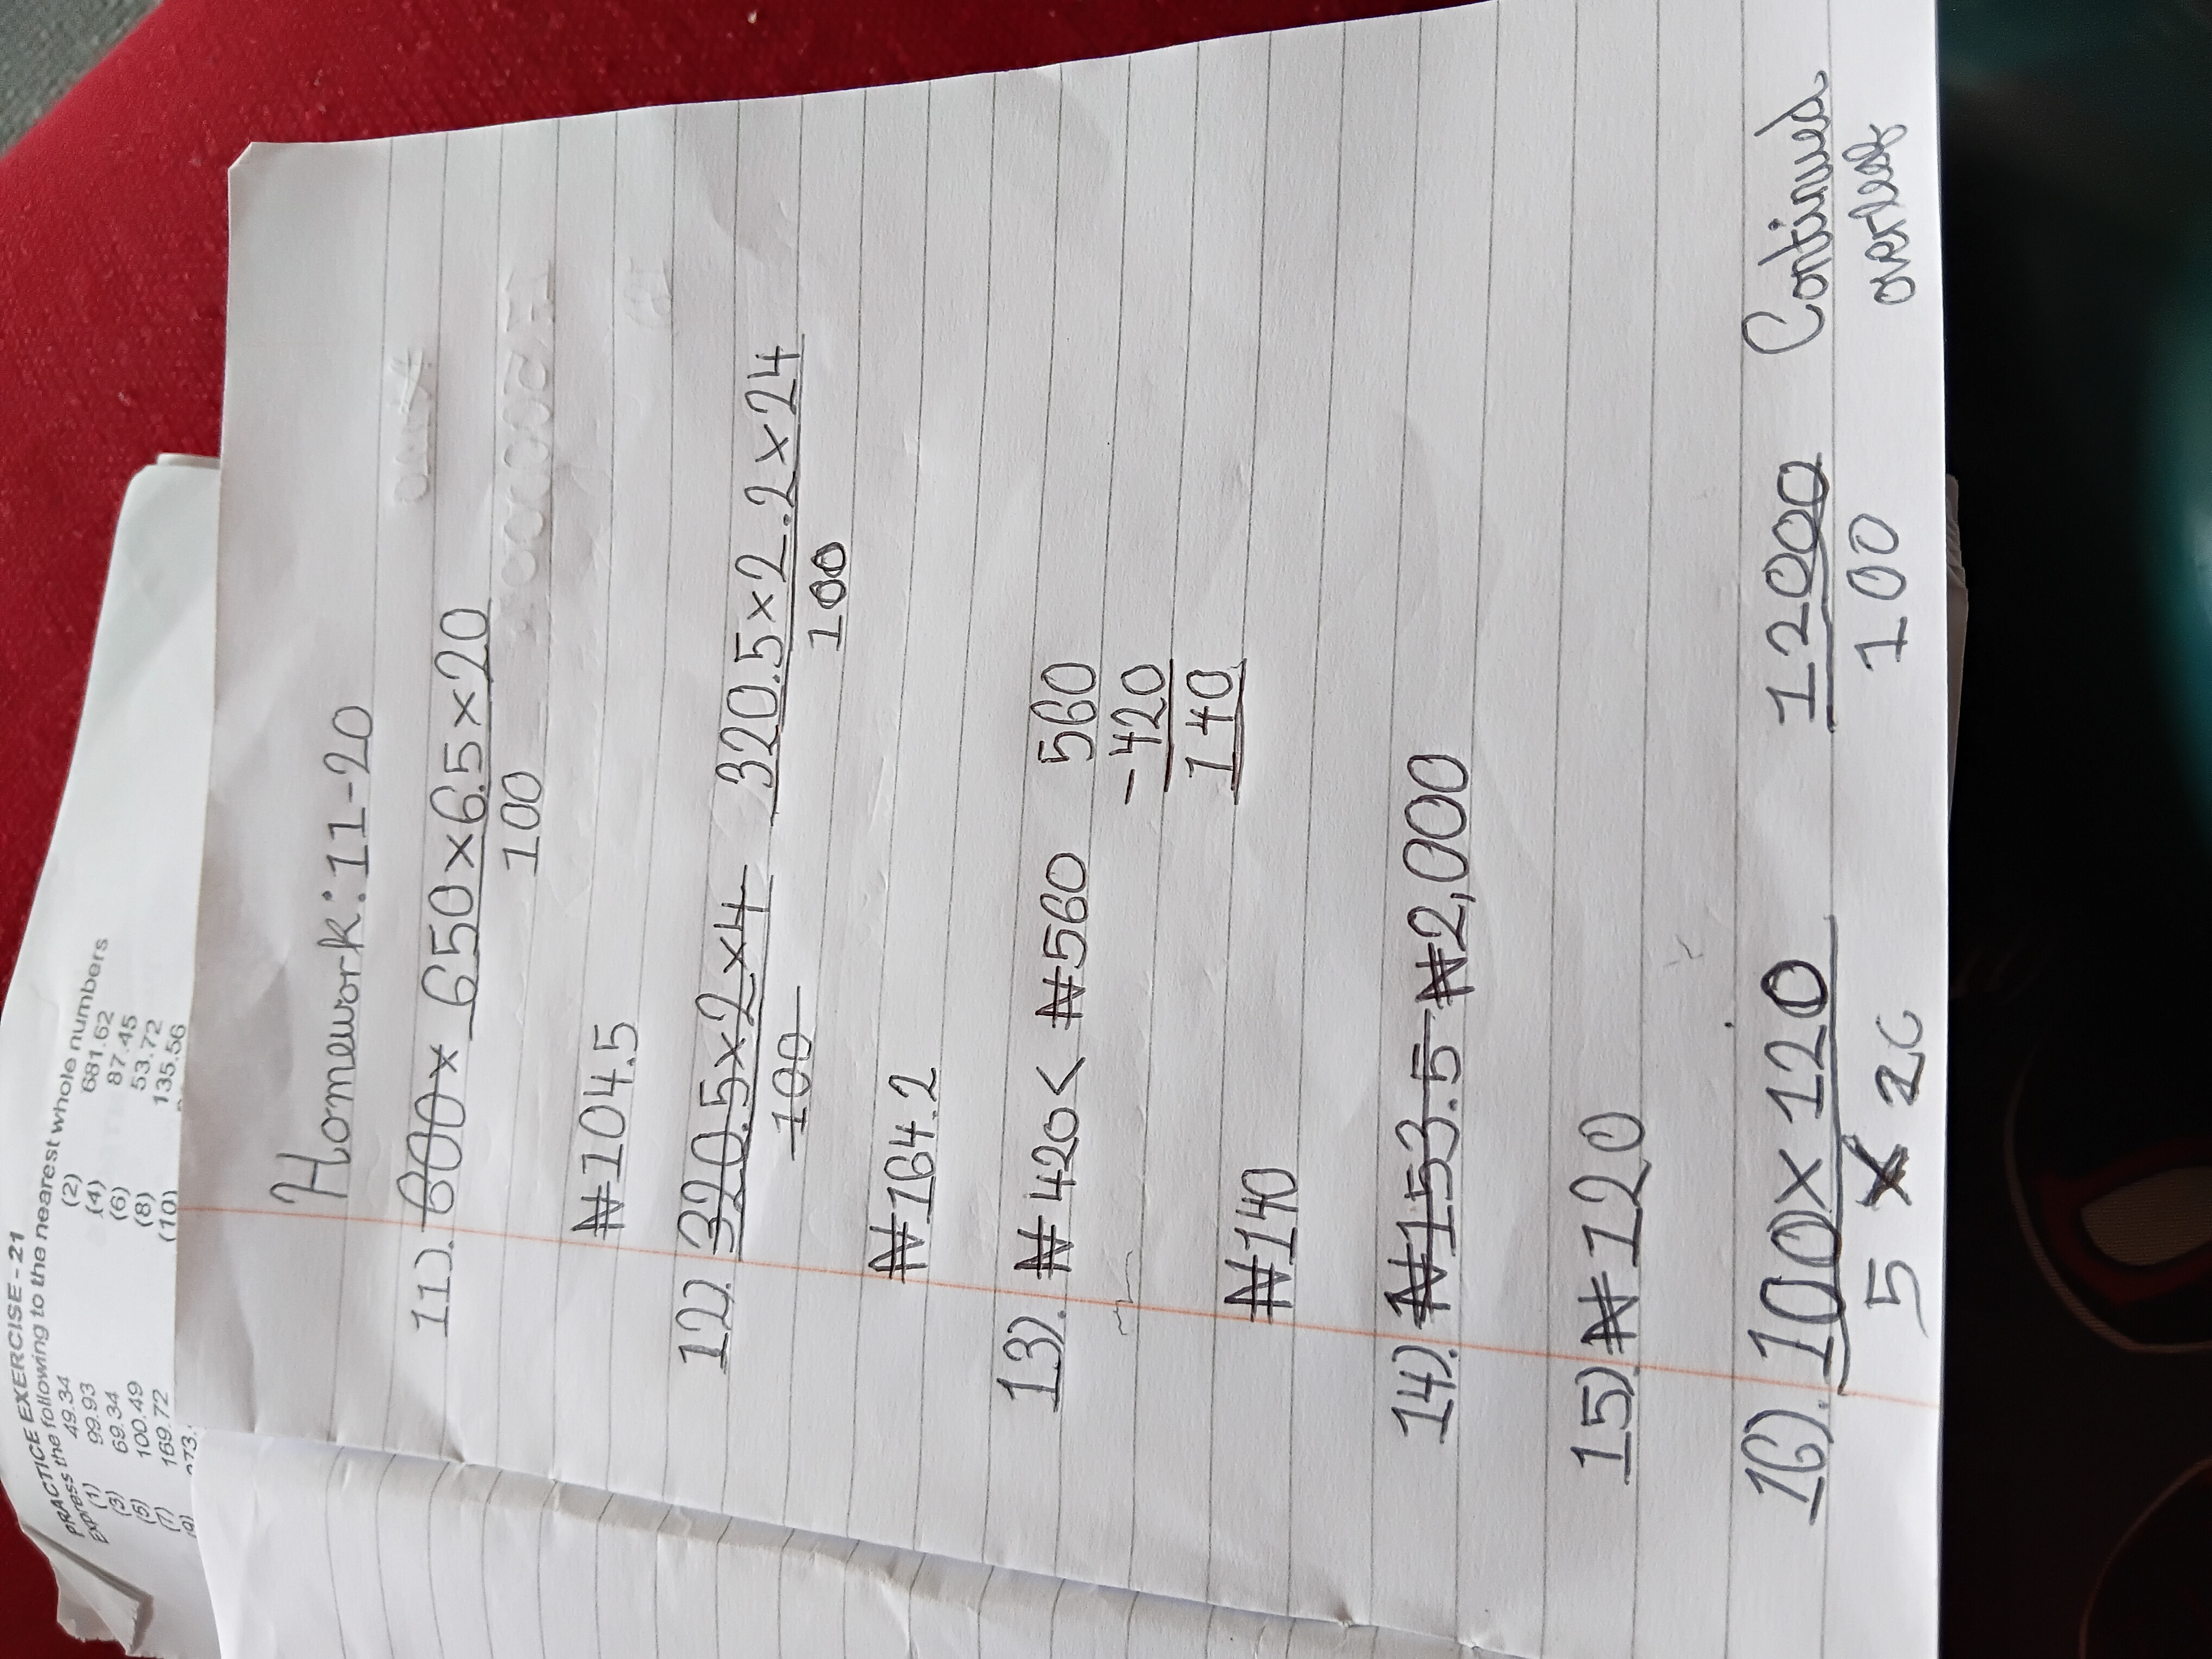 PRACTICE EXERCISE - 21
Express the following to the nearest whole numbers
(1) 49.34 (2) 681.62
(3) 99.93 (4) 87.45
(5) 69.34 (6) 53.72
(7) 100.49 (8) 135.56
(9) 169.72 (10)
273.
Homework: 11-20
11). 600x 650x6.5x20
100
₦104.5
12). 320.5x2x4 320.5x2.2x24
100 100
₦164.2
13). ₦420< ₦560 560
-420
140
₦140
14). ₦153.5 ₦2,000
15) ₦120
16). 100x120 12000 Continued
5 x 20 100 overleaf